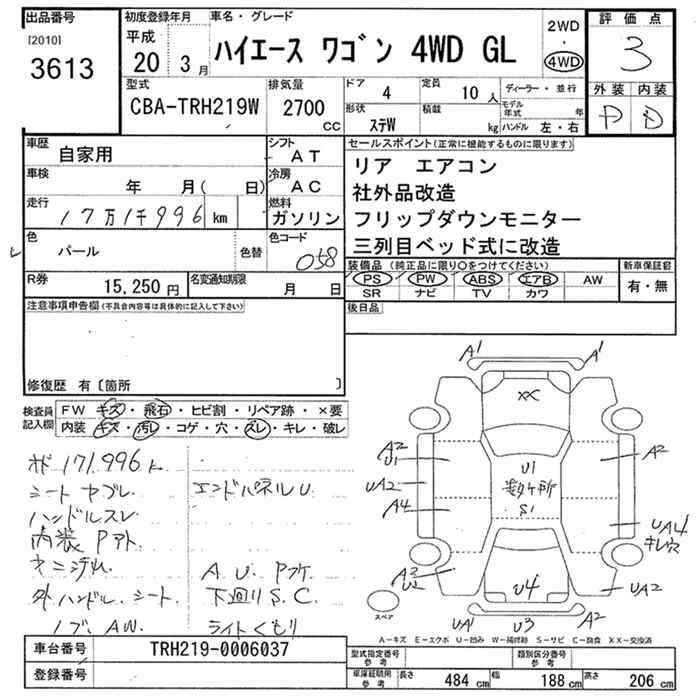 出品番号
[2010]
3613
初度登録年月
平成
20 3月
車名・グレード
ハイエース ワゴン 4WD GL
2WD
・
4WD
評価点
3
外装 内装
D D
型式
CBA-TRH219W
排気量
2700
cc
ドア
4
定員
10 人
ディーラー・並行
形状
ステW
積載
kg
モデル年式 年
ハンドル 左・右
車歴
自家用
シフト
AT
車検
年 月( 日)
冷房
AC
走行
17万1千996 km
燃料
ガソリン
色
パール
色替
色コード
058
R券
15,250 円
名変通知期限
月 日
セールスポイント(正常に機能するものに限ります)
リア エアコン
社外品改造
フリップダウンモニター
三列目ベッド式に改造
装備品(純正品に限り○をつけてください)
PS PW ABS エアB AW
SR ナビ TV カワ
新車保証書
有・無
後日品
注意事項申告欄(不具合内容等は具体的に記入して下さい)
修復歴 有〔箇所 〕
検査員記入欄
FW キズ・飛石・ヒビ割・リペア跡・×要
内装 キズ・汚レ・コゲ・穴・スレ・キレ・破レ
171,996 k
シートヤブレ
エンドパネルU
ハンドルスレ
内装
ヤニ汚れ
A.U.
外ハンドル、シート
下廻りS.C.
ノブ、AW.
ライトくもり
A1 A1
XX
A2
U1
A2
UA2
U1
数ヶ所
S1
A4
UA4
キレ穴
A2
U2
U4
UA2
スペア
UA1
U3
A2
A-キズ E-エクボ U-凹み W-補修跡 S-サビ C-腐食 XX-交換済
車台番号
TRH219-0006037
登録番号
型式指定番号
参考
類別区分番号
参考
車庫証明用
参考
長さ 484 cm
幅 188 cm
高さ 206 cm